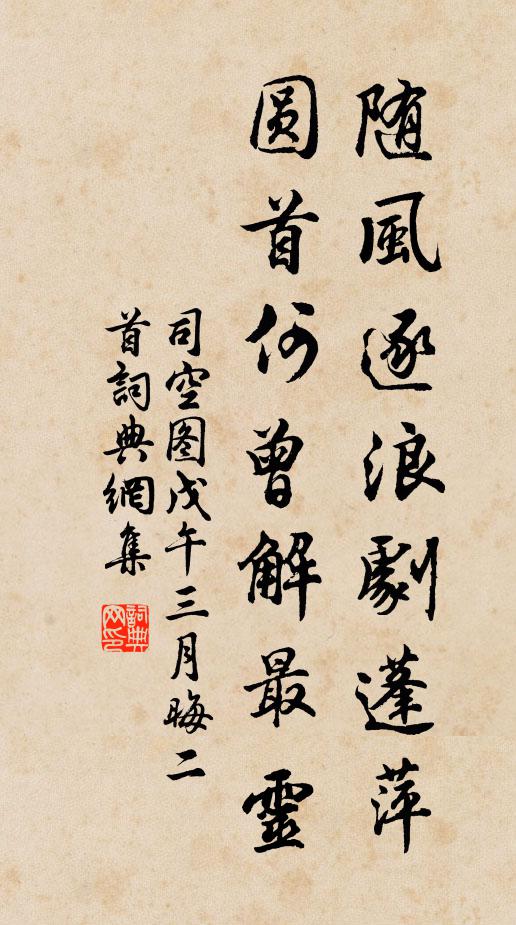 随風逐浪劇蓬萍
圆首何曾解最靈
司空图戊午三月晦二
首詞典網集
詞典网印